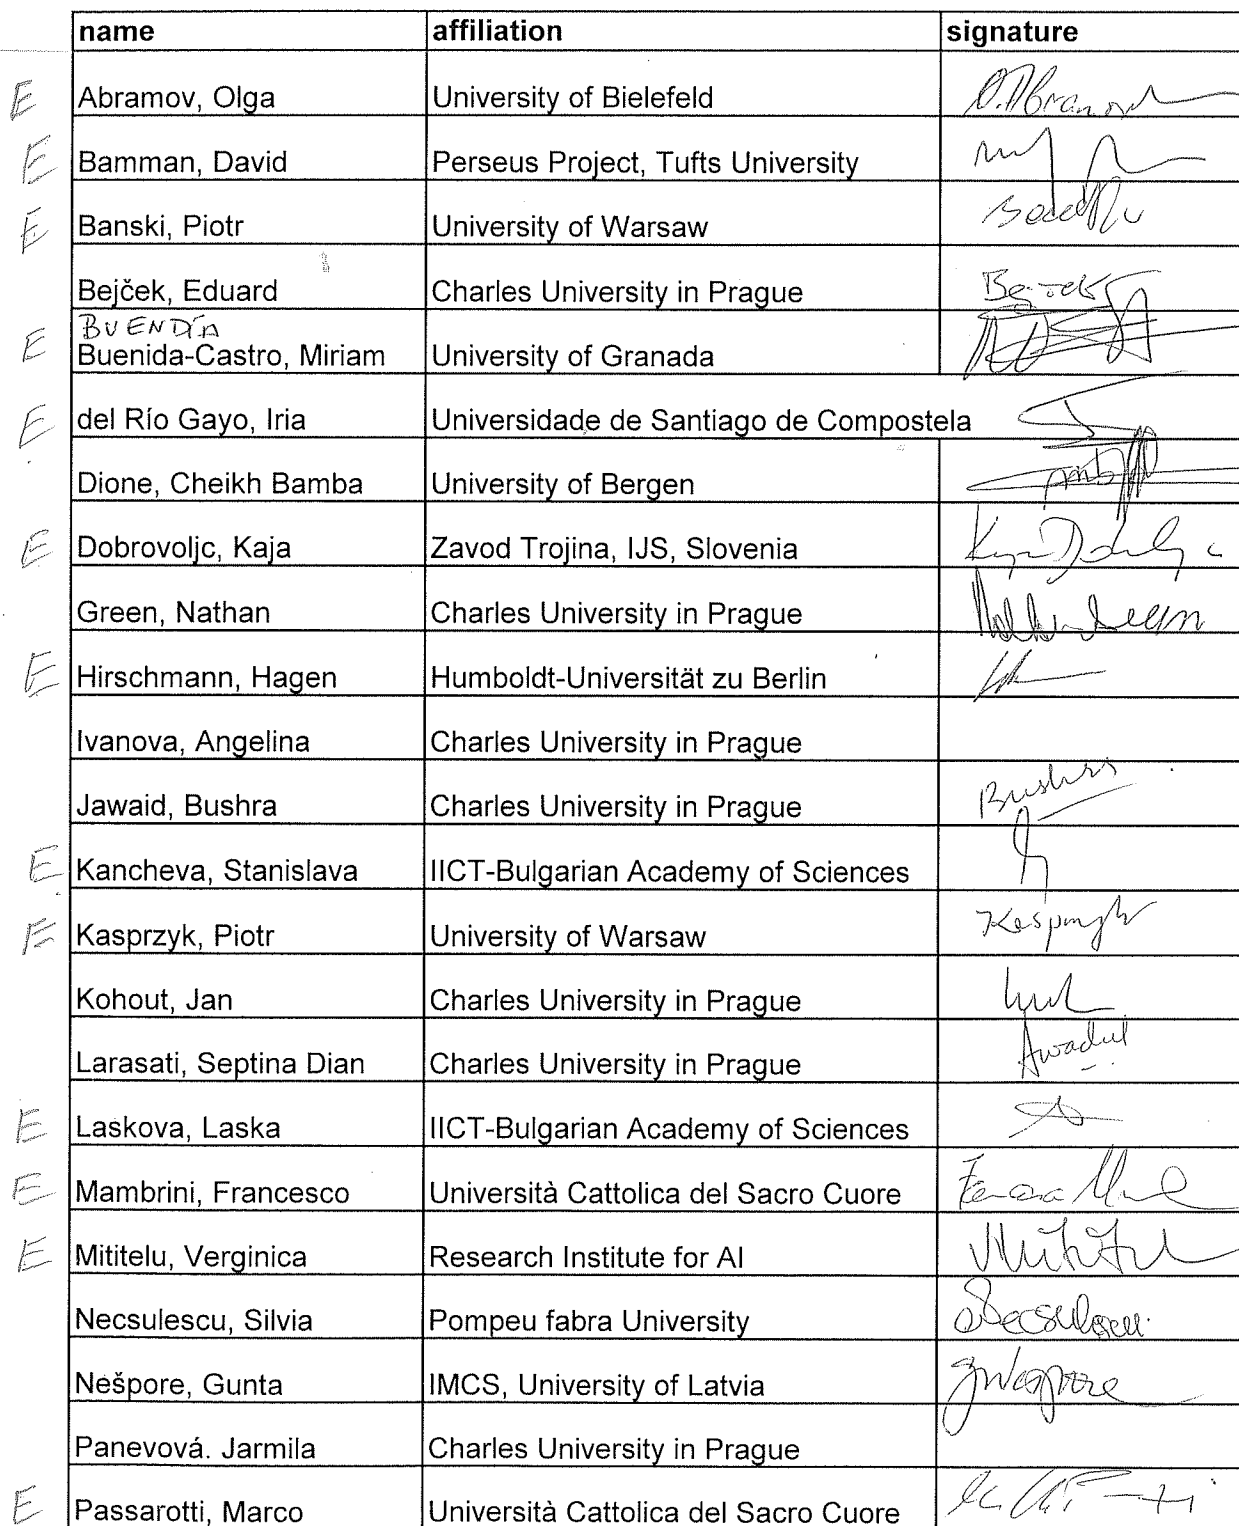 name affiliation signature
E Abramov, Olga University of Bielefeld O.Abramov
E Bamman, David Perseus Project, Tufts University
E Banski, Piotr University of Warsaw
Bejček, Eduard Charles University in Prague Bejček
BUENDÍA
E Buenida-Castro, Miriam University of Granada
E del Río Gayo, Iria Universidade de Santiago de Compostela
Dione, Cheikh Bamba University of Bergen
E Dobrovoljc, Kaja Zavod Trojina, IJS, Slovenia
Green, Nathan Charles University in Prague Nathan Green
E Hirschmann, Hagen Humboldt-Universität zu Berlin
Ivanova, Angelina Charles University in Prague
Jawaid, Bushra Charles University in Prague Bushra
E Kancheva, Stanislava IICT-Bulgarian Academy of Sciences
E Kasprzyk, Piotr University of Warsaw Kasprzyk
Kohout, Jan Charles University in Prague
Larasati, Septina Dian Charles University in Prague
E Laskova, Laska IICT-Bulgarian Academy of Sciences
E Mambrini, Francesco Università Cattolica del Sacro Cuore
E Mititelu, Verginica Research Institute for AI Mititelu
Necsulescu, Silvia Pompeu fabra University SNecsulescu
Nešpore, Gunta IMCS, University of Latvia GNešpore
Panevová. Jarmila Charles University in Prague
E Passarotti, Marco Università Cattolica del Sacro Cuore